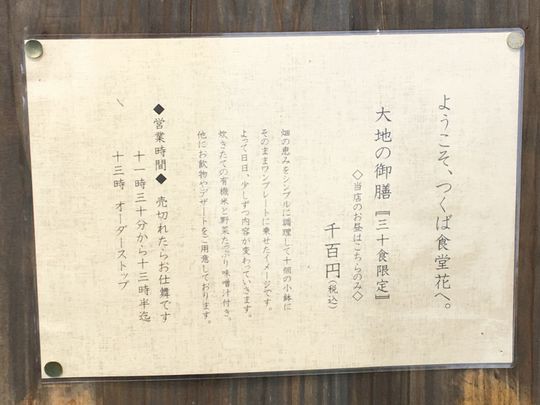 ようこそ、つくば食堂花へ。
大地の御膳『三十食限定』
◇当店のお昼はこちらのみ◇
千百円(税込)
畑の恵みをシンプルに調理して十個の小鉢に
そのままワンプレートに乗せたイメージです。
よって日日、少しずつ内容が変わっていきます。
炊きたての有機米と野菜たっぷり味噌汁付き。
他にお飲物やデザートをご用意しております。
◆営業時間◆ 売切れたらお仕舞です
十一時三十分から十三時半迄
十三時 オーダーストップ